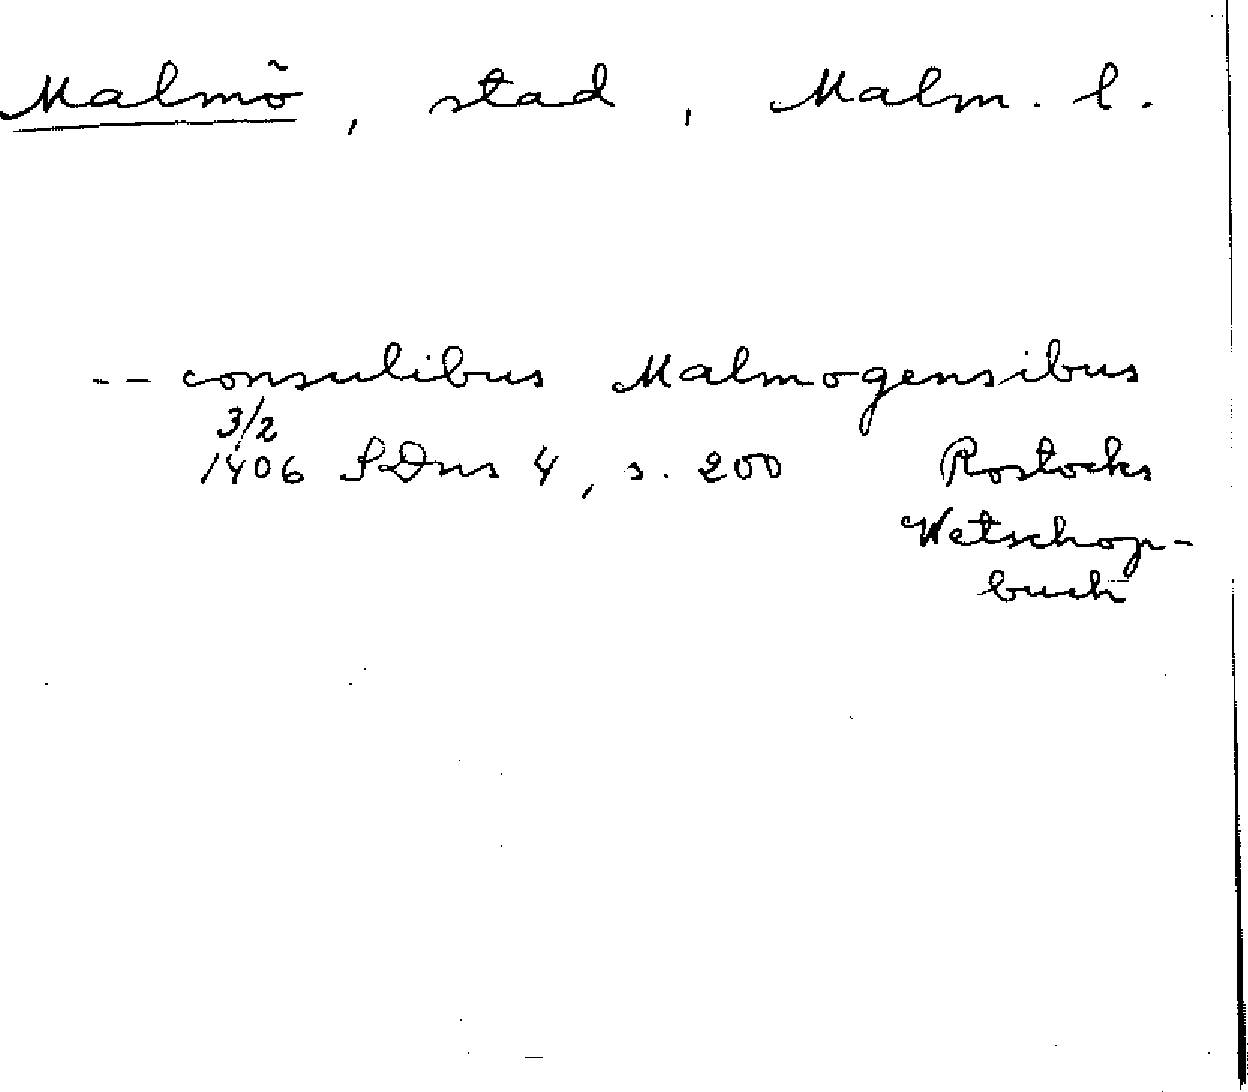 Malmö, stad, Malm. l.
-- consulibus Malmogensibus
3/2
1406 SDns 4, s. 200 Rostocks
Wetschop-
buch